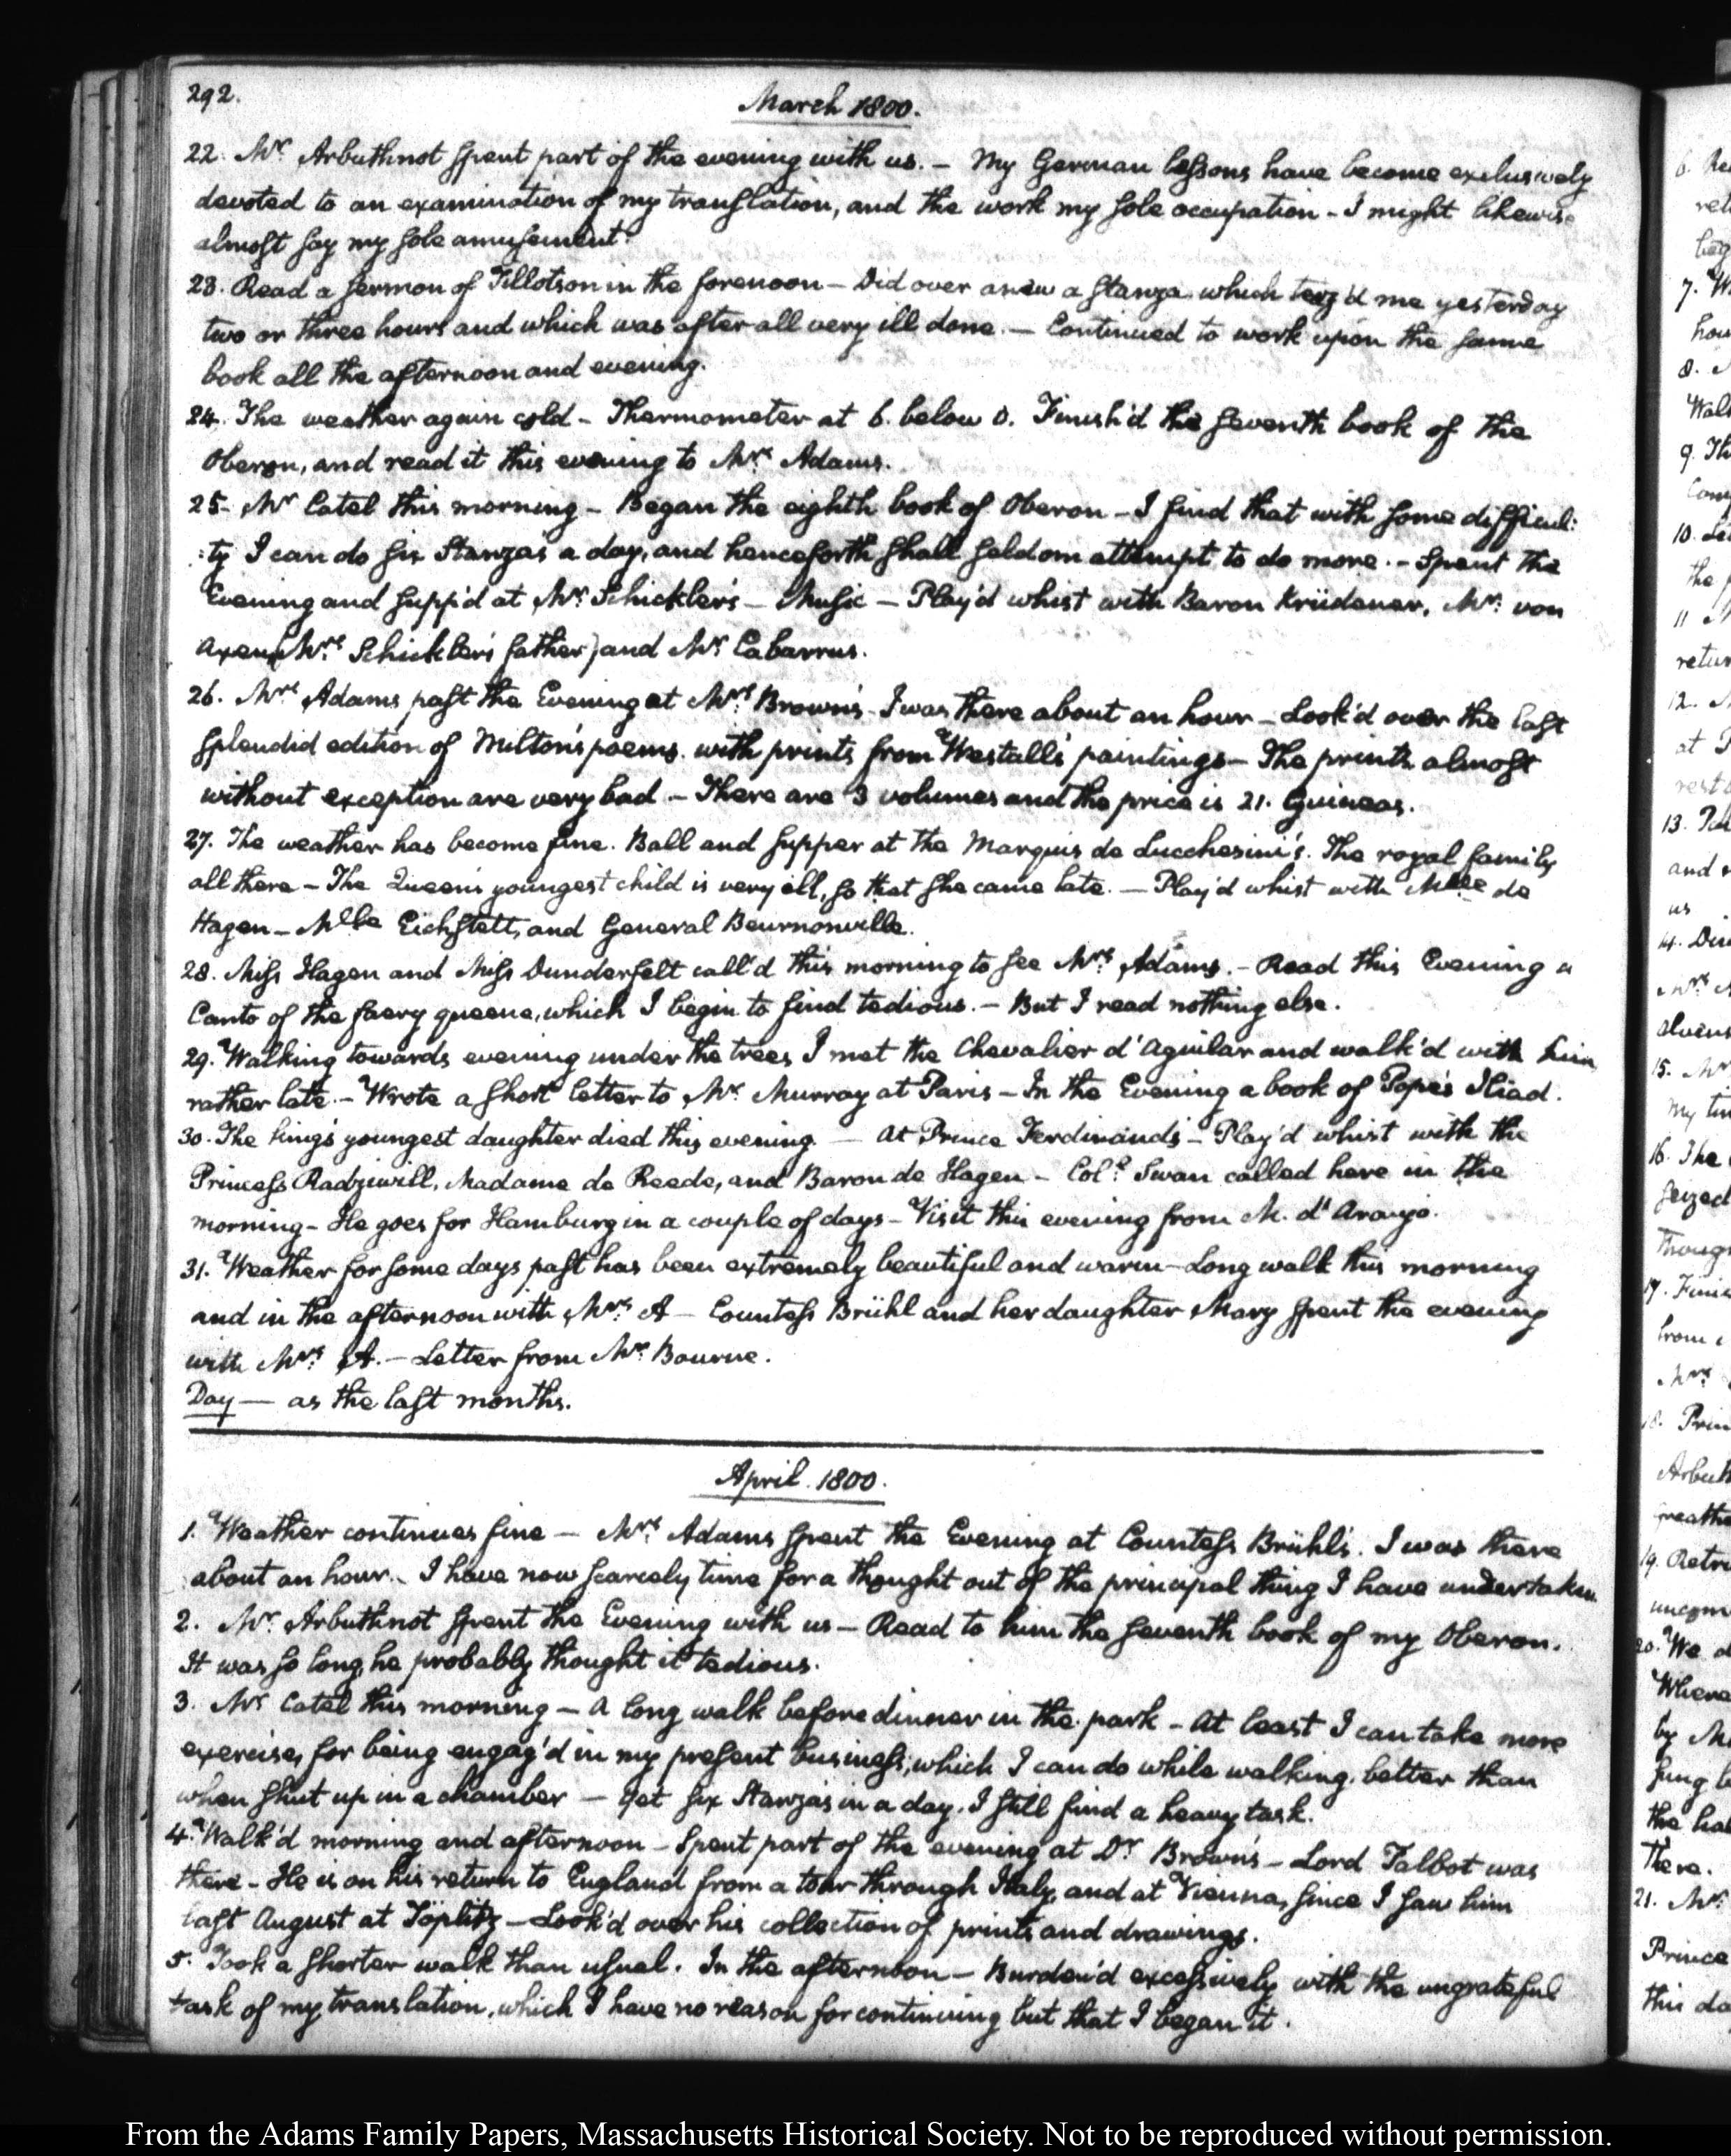 292.
March 1800.
22. Mr. Arbuthnot spent part of the evening with us. – My German lessons have become exclusively
devoted to an examination of my translation, and the work my sole occupation – I might likewise
almost say my sole amusement.
23. Read a sermon of Tillotson in the forenoon – Did over anew a stanza which teaz'd me yesterday
two or three hours and which was after all very ill done. – Continued to work upon the same
book all the afternoon and evening.
24. The weather again cold – Thermometer at 6. below 0. Finish'd the seventh book of the
Oberon, and read it this evening to Mrs. Adams.
25. Mr Catel this morning – Began the eighth book of Oberon – I find that with some difficul:
:ty I can do six Stanza's a day, and henceforth shall seldom attempt to do more. – Spent the
Evening and supp'd at Mr. Schickler's – Music – Play'd whist with Baron Krüdener, Mr. von
Axen (Mrs. Schickler's father) and Mr Cabarrus.
26. Mrs. Adams past the Evening at Mrs. Brown's. I was there about an hour – Look'd over the last
splendid edition of Milton's poems. with prints from Westall's paintings – The prints almost
without exception are very bad – There are 3 volumes and the price is 21. Guineas.
27. The weather has become fine. Ball and supper at the Marquis de Lucchesini's. The royal family
all there – The Queen's youngest child is very ill, so that she came late. – Play'd whist with Mlle de
Hagen – Mlle Eichstett, and General Beurnonville.
28. Miss Hagen and Miss Dunderfelt call'd this morning to see Mrs. Adams. – Read this Evening a
Canto of the faery queene, which I begin to find tedious. – But I read nothing else.
29. Walking towards evening under the trees I met the Chevalier d'Aguilar and walk'd with him
rather late. – Wrote a short letter to Mr. Murray at Paris – In the Evening a book of Pope's Iliad.
30. The king's youngest daughter died this evening. – At Prince Ferdinand's – Play'd whist with the
Princess Radziwill, Madame de Reede, and Baron de Hagen – Col: Swan called here in the
morning – He goes for Hamburg in a couple of days – Visit this evening from M. d'Araujo.
31. Weather for some days past has been extremely beautiful and warm – Long walk this morning
and in the afternoon with Mrs. A – Countess Brühl and her daughter Mary spent the evening
with Mrs. A. – Letter from Mr. Bourne.
Day – as the last months.
April. 1800.
1. Weather continues fine – Mrs. Adams spent the Evening at Countess Brühl's. I was there
about an hour. – I have now scarcely time for a thought out of the principal thing I have undertaken.
2. Mr. Arbuthnot spent the Evening with us – Read to him the seventh book of my Oberon.
It was so long, he probably thought it tedious.
3. Mr Catel this morning – A long walk before dinner in the park – At least I can take more
exercise, for being engag'd in my present business, which I can do while walking, better than
when shut up in a chamber – Yet six Stanza's in a day, I still find a heavy task.
4. Walk'd morning and afternoon – Spent part of the evening at Dr Brown's – Lord Talbot was
there – He is on his return to England from a tour through Italy, and at Vienna, since I saw him
last August at Töplitz – Look'd over his collection of prints and drawings.
5. Took a shorter walk than usual. In the afternoon – Burden'd excessively with the ungrateful
task of my translation, which I have no reason for continuing but that I began it.
From the Adams Family Papers, Massachusetts Historical Society. Not to be reproduced without permission.